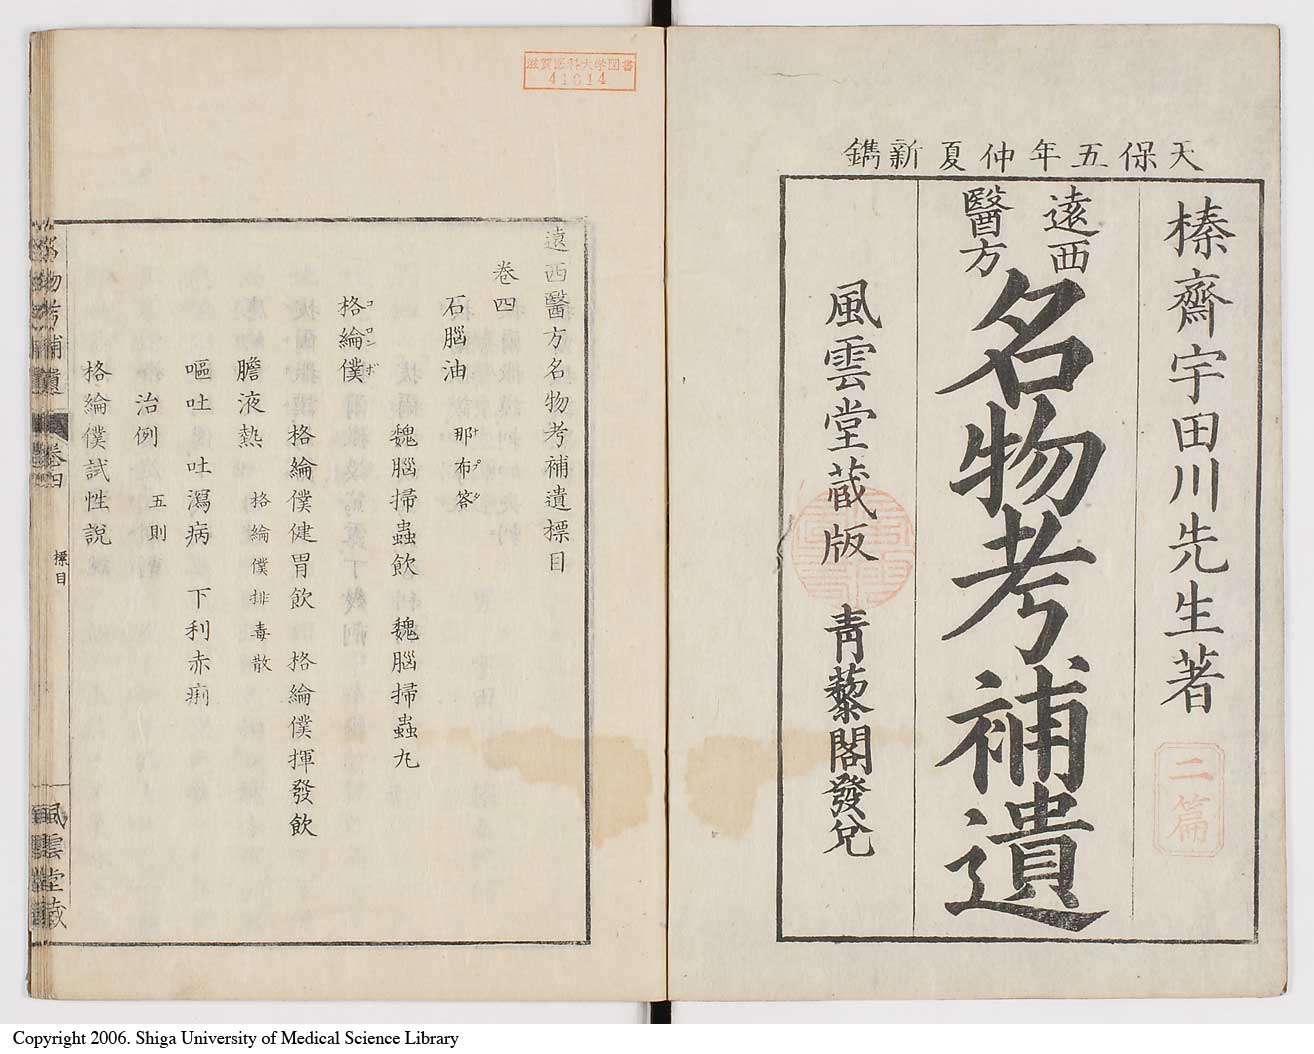 天保五年仲夏新鐫
榛齋宇田川先生著
二篇
遠西
醫方
名物考補遺
風雲堂蔵版　青藜閣發兌
滋賀医科大学図書
41614
遠西醫方名物考補遺標目
卷四
石腦油　那布答
ナプタ
魏腦掃蟲飲　魏腦掃蟲丸
格綸僕
コロンボ
格綸僕健胃飲　格綸僕揮發飲
膽液熱　格綸僕排毒散
嘔吐　吐瀉病　下利赤痢
治例　五則
格綸僕試性說
名物考補遺　卷四　標目　風雲堂蔵
Copyright 2006. Shiga University of Medical Science Library